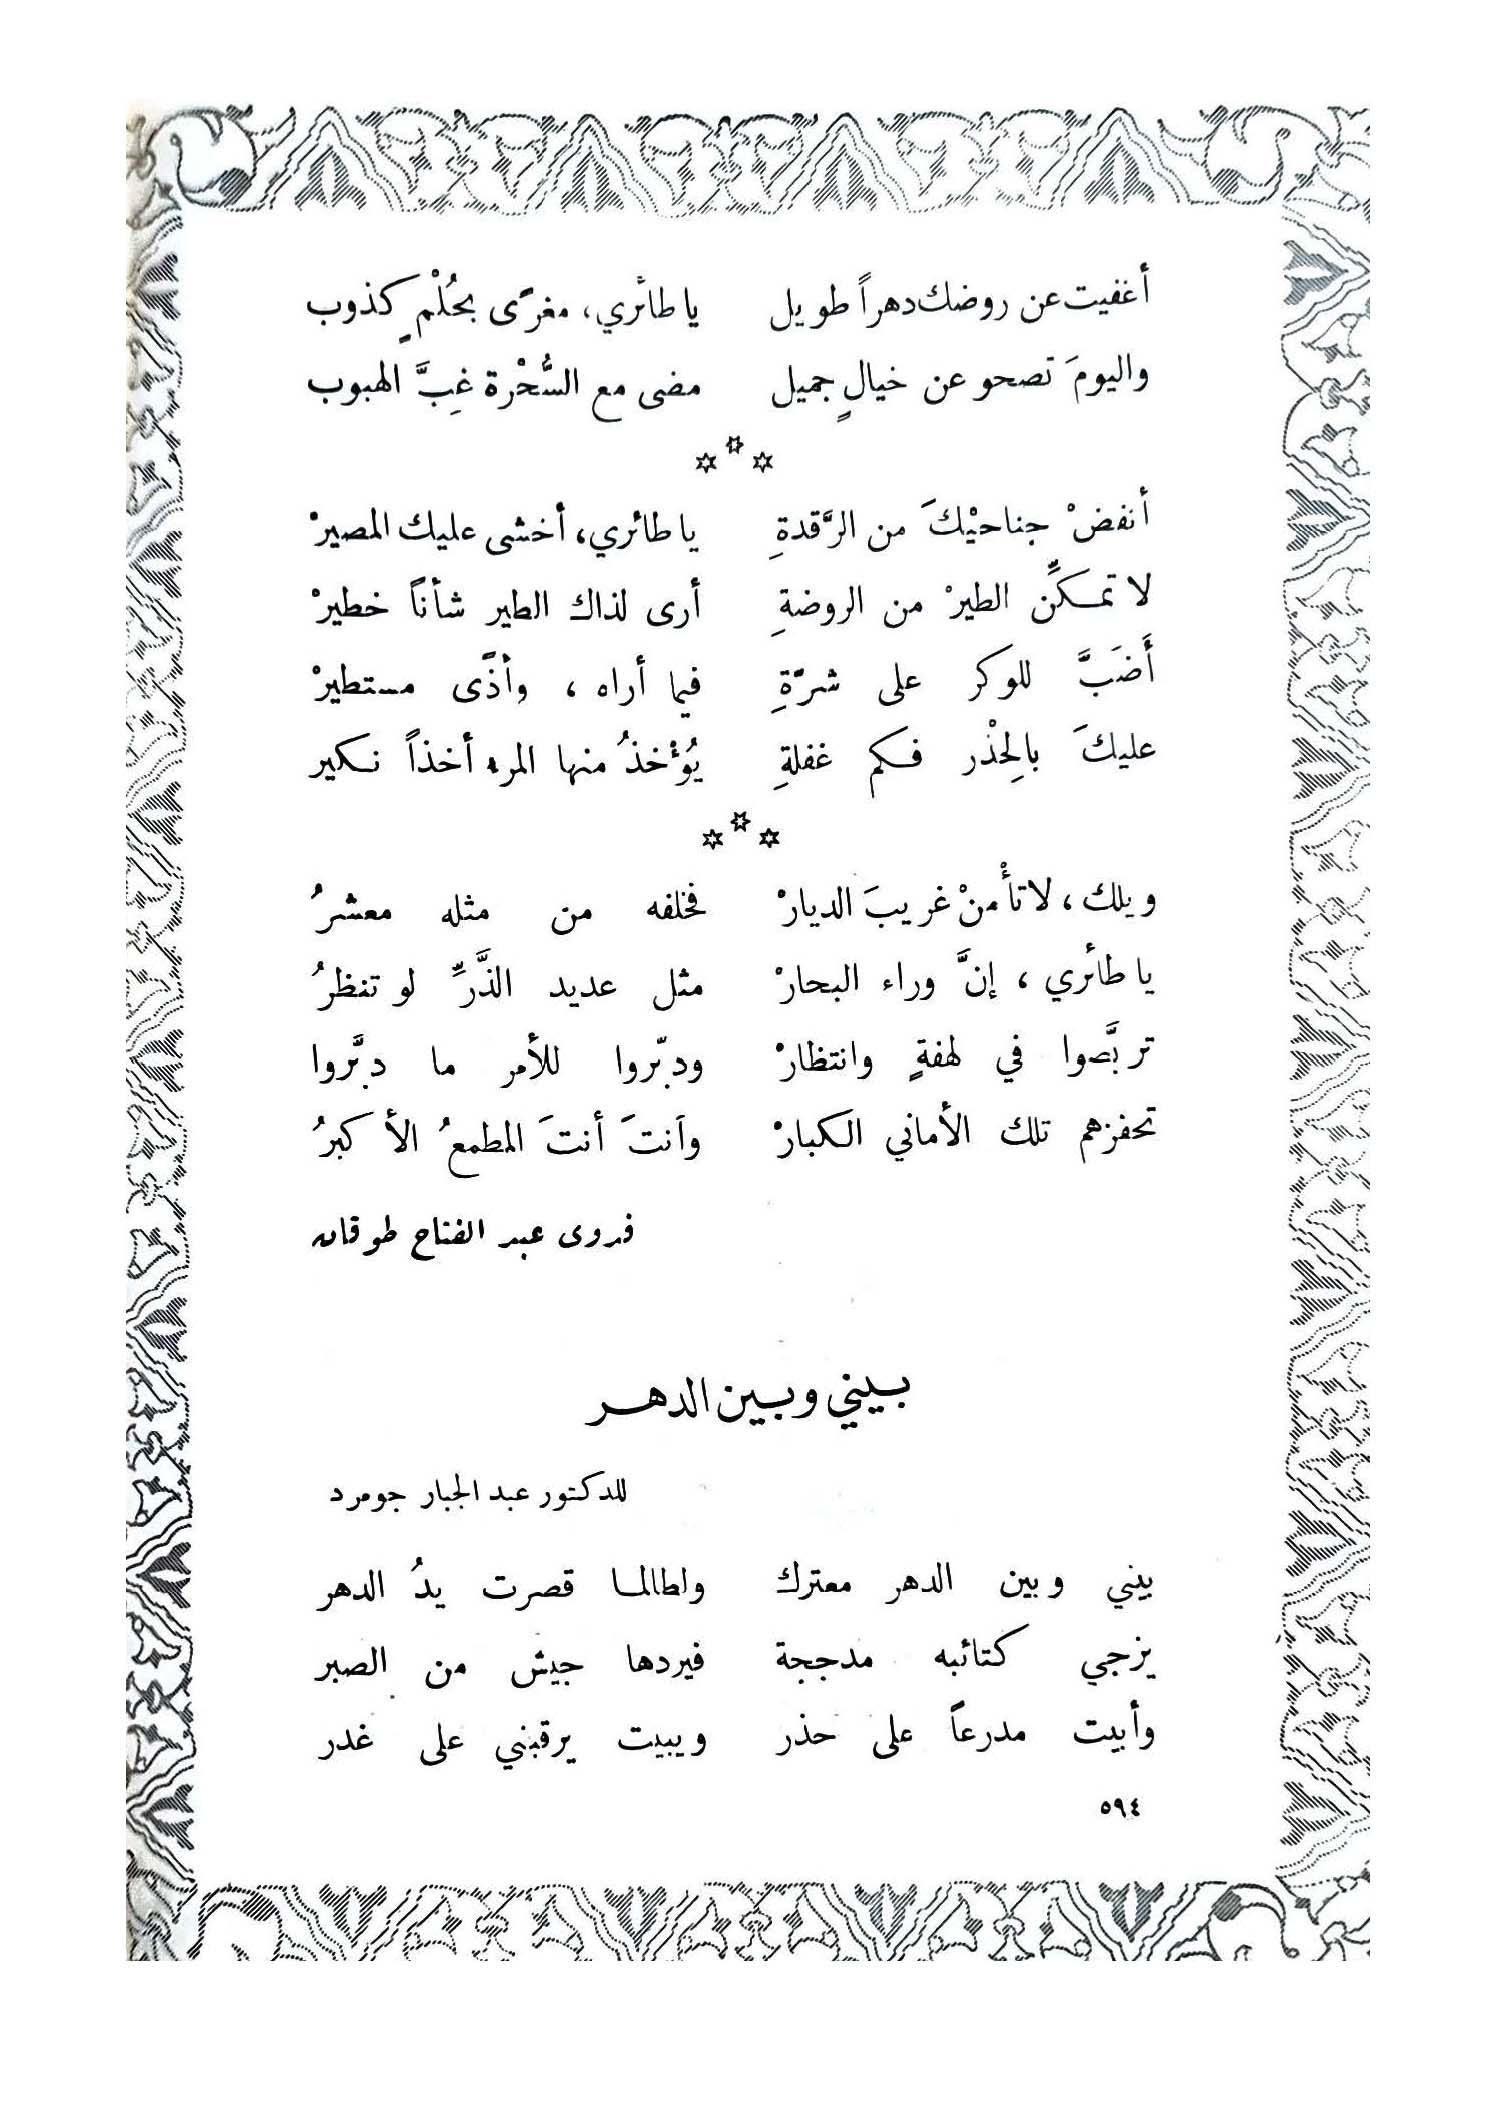 أغفيت عن روضك دهراً طويل يا طائري، مغرًى بحُلْمٍ كذوب
واليومَ تصحو عن خيالٍ جميل مضى مع السُّحْرة غِبَّ الهبوب
***
أنفضْ جناحيْكَ من الرَّقدةِ يا طائري، أخشى عليك المصيرْ
لا تمكّنِ الطيرْ من الروضةِ أرى لذاك الطير شأناً خطيرْ
أَضَبَّ للوكر على شرَّةِ فيما أراه ، وأذًى مستطيرْ
عليكَ بالِحذْر فكم غفلةِ يُؤْخذُ منها المرء أخذاً نكير
***
ويلك ، لا تأْمنْ غريبَ الديارْ فخلفه من مثله معشرُ
يا طائري ، إنَّ وراء البحارْ مثل عديد الذَّرِّ لو تنظرُ
تربَّصوا في لهفةٍ وانتظارْ ودبّروا للأمر ما دبَّروا
تحفزهم تلك الأماني الكبارْ وأنتَ أنتَ المطمعُ الأكبرُ
فدوى عبد الفتاح طوقان
بيني وبين الدهر
للدكتور عبد الجبار جومرد
بيني وبين الدهر معترك ولطالما قصرت يدُ الدهر
يزجي كتائبه مدججة فيردها جيش من الصبر
وأبيت مدرعاً على حذر ويبيت يرقبني على غدر
٥٩٤